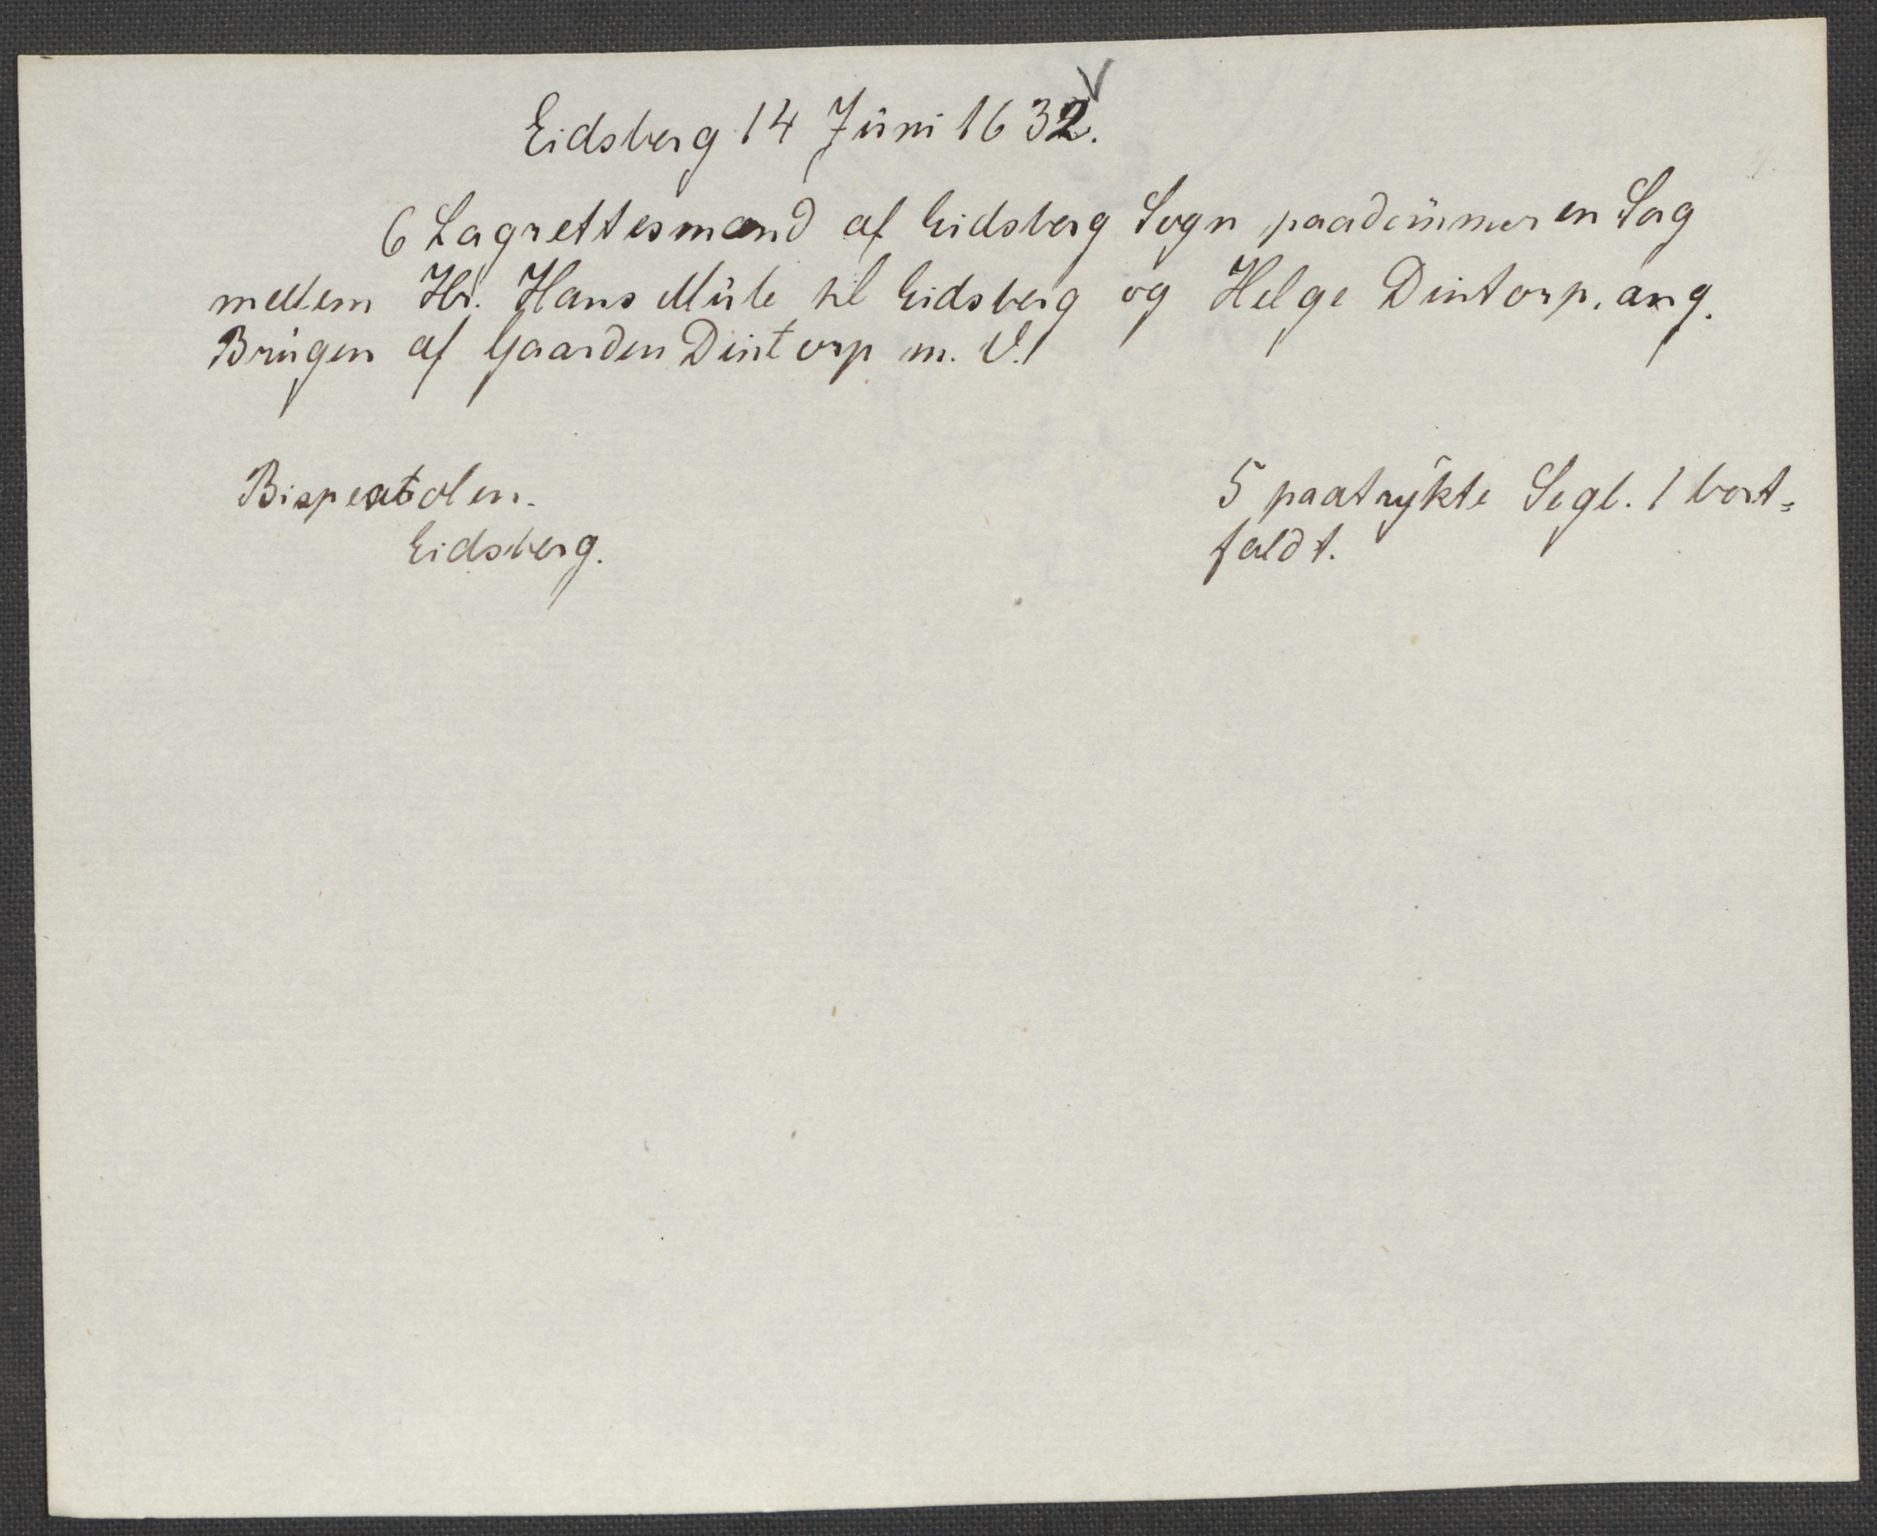 Eidsberg 14 Juni 1632.
6 Lagrettesmænd af Eidsberg Sogn, paadømmer en Sag
mellem Hr. Hans Mule til Eidsberg og Helge Dintorp, ang.
Brugen af Gaarden Dintorp m. V.
Bispestolen.
Eidsberg.
5 paatrykte Segl. 1 bort=
faldt.